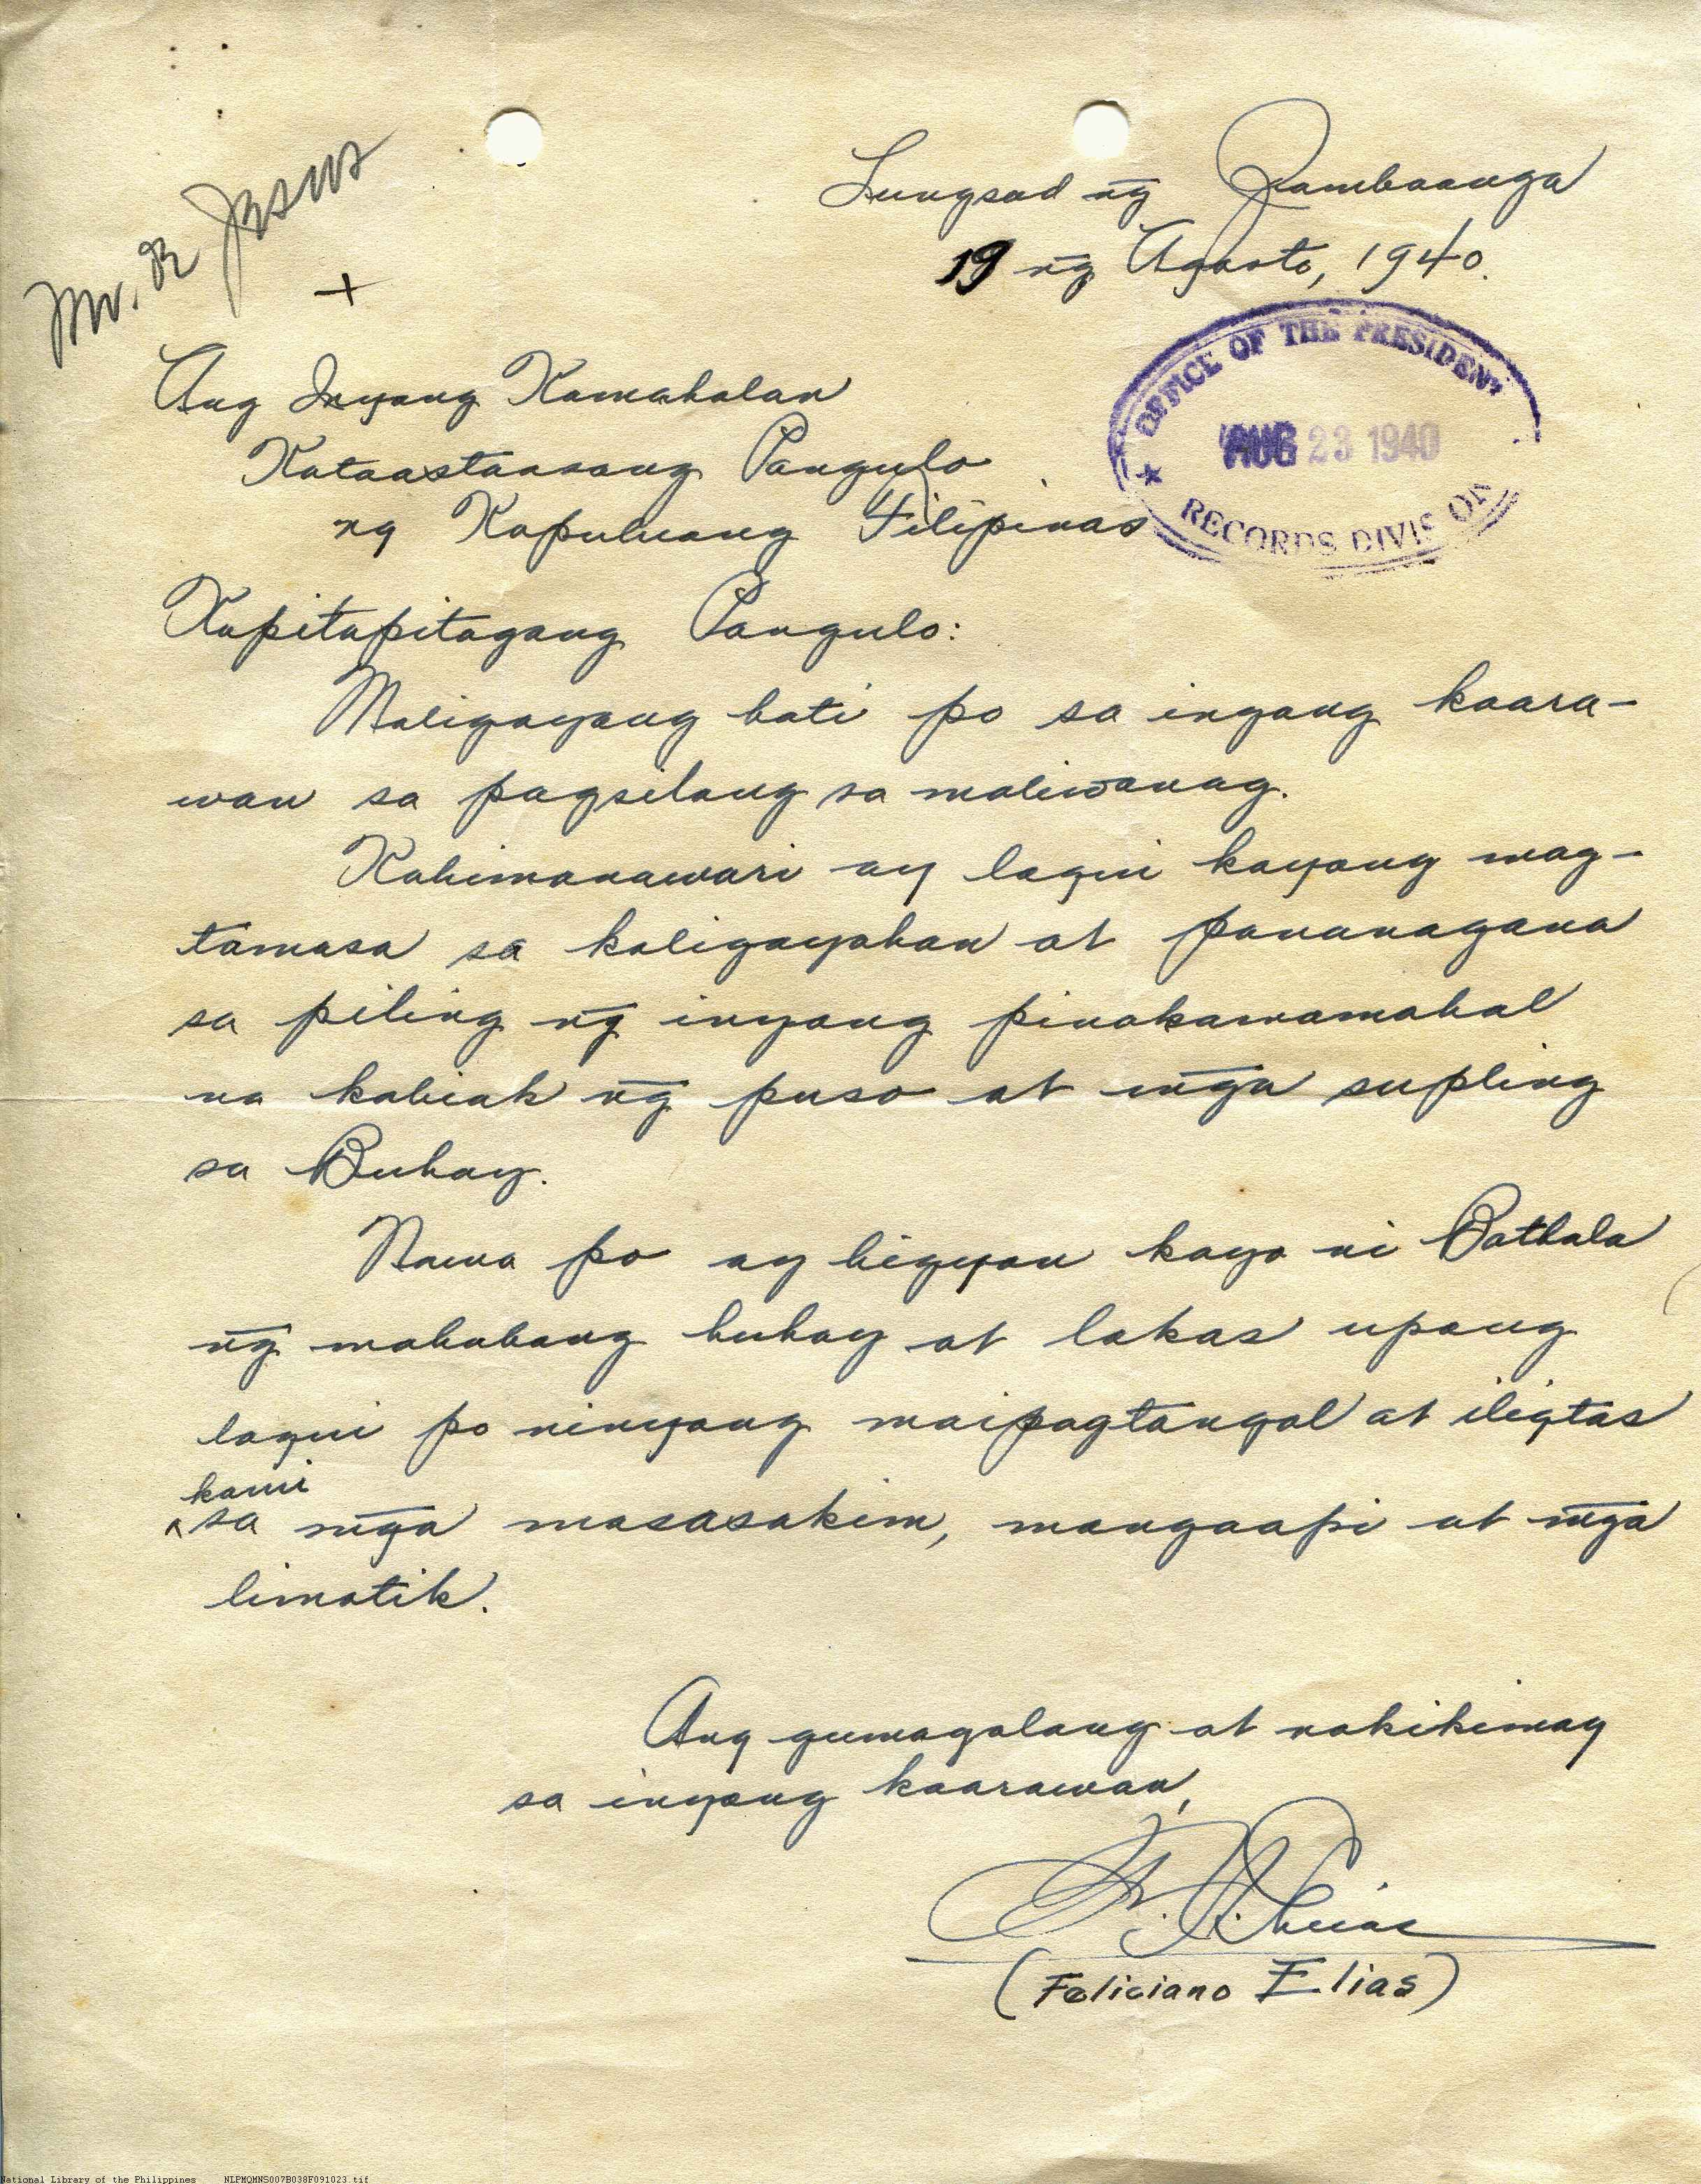 Mr. de Jesus
Lungsod ng̃ Zamboanga
19 ng̃ Agosto, 1940.
+
OFFICE OF THE PRESIDENT
AUG 23 1940
★ RECORDS DIVISION
Ang Inyong Kamahalan
Kataastaasang Pangulo
ng Kapuluang Filipinas
Kapitapitagang Pangulo:
Maligayang bati po sa inyong kaara-
wan sa pagsilang sa maliwanag.
Kahimanawari ay lagui kayong mag-
tamasa sa kaligayahan at pananagana
sa piling ng̃ inyong pinakamamahal
na kabiak ng̃ puso at mg̃a supling
sa Buhay.
Nawa po ay bigyan kayo ni Bathala
ng̃ mahabang buhay at lakas upang
lagui po ninyong maipagtangol at iligtas
kami
^sa mg̃a masasakim, mangaapi at mg̃a
limatik.
Ang gumagalang at nakikimag
sa inyong kaarawan,
F. Elias
(Feliciano Elias)
National Library of the Philippines NLPMQMNS007B038F091023.tif